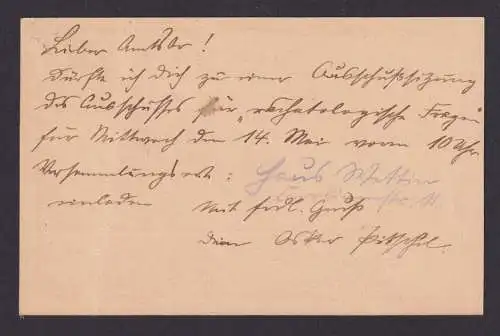 Lieber Amtsbr!
Dürfte ich dich zu einer Ausschußsitzung
des Ausschusses für „eschatologische Fragen“
für Mittwoch den 14. Mai vorm 10 Uhr
Versammlungsort: Haus Wettin
einladen
Mit frdl. Gruß
dein Oskar Pitschel.